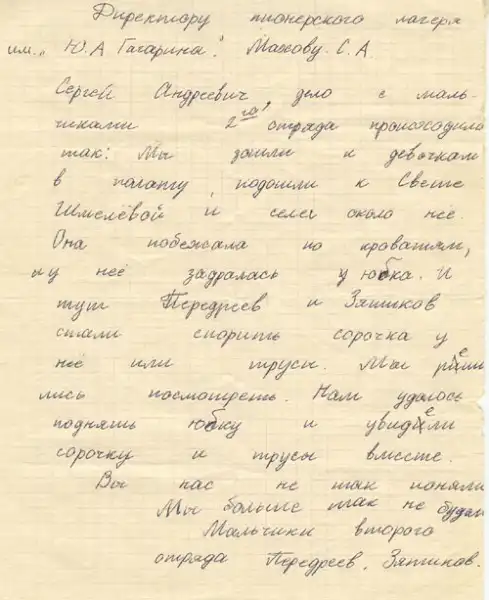 Директору пионерского лагеря
им. „Ю.А Гагарина". Махову. С.А.
Сергей Андреевич, дело с маль-
чиками 2го отряда происходило
так: Мы зашли к девочкам
в палату, подошли к Свете
Шмелёвой и сели около неё.
Она побежала по кроватям,
и у неё задралась у юбка. И
тут Передреев и Зятиков
стали спорить сорочка у
неё или трусы. Мы реши
лись посмотреть. Нам удалось
поднять юбку и увидели
сорочку и трусы вместе.
Вы нас не так поняли
Мы больше так не будем
Мальчики второго
отряда Передреев, Зятиков.